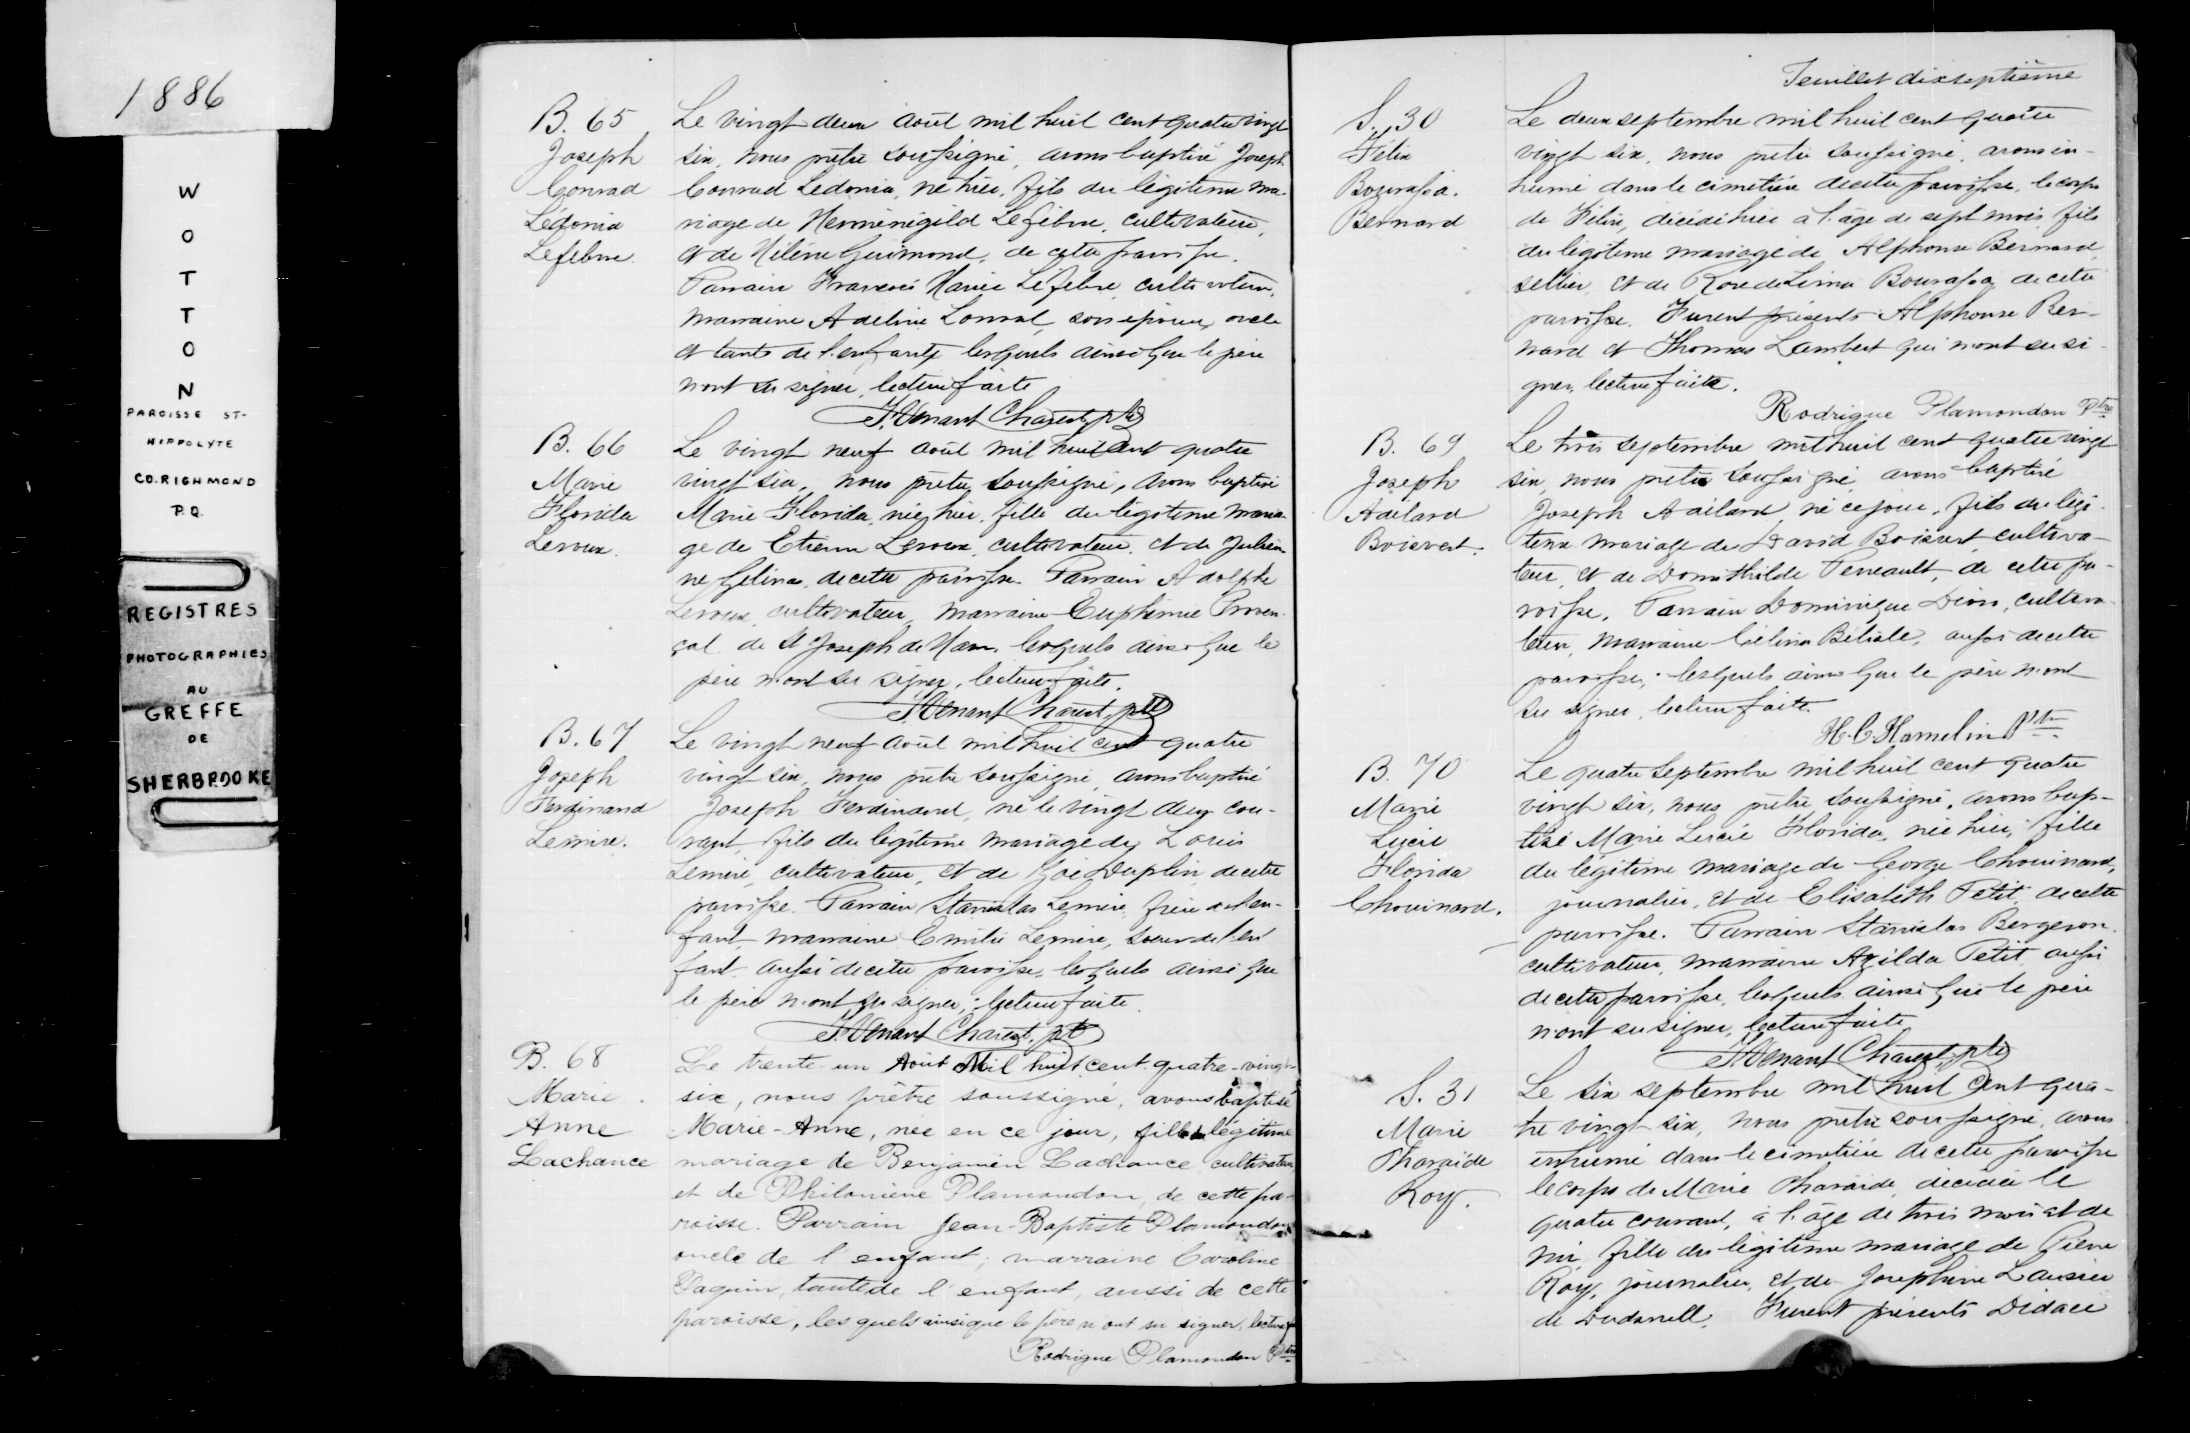 1886
W
O
T
T
O
N
PAROISSE ST-
HIPPOLYTE
CO. RICHMOND
P.Q.
REGISTRES
PHOTOGRAPHIES
AU
GREFFE
DE
SHERBROOKE
B. 65
Joseph
Conrad
Lédonia
Lefebvre.
Le vingt deux août mil huit cent quatre vingt
six, nous prêtre soussigné, avons baptisé Joseph
Conrad Ledonia, né hier, fils du légitime ma-
riage de Herménégild Lefebvre, cultivateur,
et de Hélène Guimond, de cette paroisse.
Parrain François Lefebvre cultivateur,
marraine Adeline son épouse, oncle
et tante de l'enfant, lesquels ainsi que le père
n'ont su signer, lecture faite
J. Venant Charest, ptre
B. 66
Marie
Florida
Leroux.
Le vingt neuf août mil huit cent quatre
vingt six, nous prêtre soussigné, avons baptisé
Marie Florida, née hier, fille du légitime maria-
ge de Etienne Leroux, cultivateur, et de Julien-
ne Gelinas, de cette paroisse. Parrain Adolphe
Leroux, cultivateur, marraine Euphémie Proven-
çal de St Joseph de Ham, lesquels ainsi que le
père n'ont su signer, lecture faite.
J. Venant Charest, ptre
B. 67
Joseph
Ferdinand
Lemire.
Le vingt neuf août mil huit cent quatre
vingt six, nous prêtre soussigné, avons baptisé
Joseph Ferdinand, né le vingt deux cou-
rant, fils du légitime mariage de Louis
Lemire, cultivateur, et de Zoé Duplin, de cette
paroisse. Parrain Stanislas Lemire, frère de l'en-
fant, marraine Emilie Lemire, soeur de l'en
fant aussi de cette paroisse, lesquels ainsi que
le père n'ont su signer; lecture faite.
J. Venant Charest, ptre
B. 68
Marie
Anne
Lachance
Le trente un Août Mil huit cent quatre-vingt-
six, nous prêtre soussigné, avons baptisé
Marie-Anne, née en ce jour, fille légitime
mariage de Benjamin Lachance cultivateur
et de Philomène Plamondon, de cette pa-
roisse. Parrain Jean-Baptiste Plamondon
oncle de l'enfant; marraine Caroline
Paquin, tante de l'enfant, aussi de cette
paroisse, lesquels ainsi que le père n'ont su signer, lecture
Rodrigue Plamondon Ptre
Feuillet dixseptième
S. 30
Félix
Bourassa.
Bernard
Le deux septembre mil huit cent quatre
vingt six, nous prêtre soussigné, avons in-
humé dans le cimetière de cette paroisse, le corps
de Félix, décédé hier à l'âge de sept mois, fils
du légitime mariage de Alphonse Bernard,
sellier, et de Rose de Lima Bourassa, de cette
paroisse. Furent présents Alphonse Ber-
nard et Thomas Lambert qui n'ont su si-
gner, lecture faite.
Rodrigue Plamondon Ptre
B. 69
Joseph
Adélard
Boisvert.
Le trois septembre mil huit cent quatre vingt
six, nous prêtre soussigné avons baptisé
Joseph Adélard, né ce jour, fils du légi-
time mariage de David Boisvert cultiva-
teur, et de Domithilde Perreault, de cette pa-
roisse. Parrain Dominique Dion, cultiva-
teur, marraine Célina Bélisle, aussi de cette
paroisse; lesquels ainsi que le père n'ont
su signer, lecture faite.
H. C. Hamelin Ptre
B. 70
Marie
Lucie
Florida
Chouinard.
Le quatre septembre mil huit cent quatre
vingt six, nous prêtre soussigné, avons bap-
tisé Marie Lucie Florida, née hier, fille
du légitime mariage de George Chouinard,
journalier, et de Elisabeth Petit, de cette
paroisse. Parrain Stanislas Bergeron
cultivateur, marraine Azilda Petit, aussi
de cette paroisse, lesquels ainsi que le père
n'ont su signer, lecture faite
J. Venant Charest, ptre
S. 31
Marie
Pharaïde
Roy.
Le six septembre mil huit cent qua-
tre vingt six, nous prêtre soussigné, avons
inhumé dans le cimetière de cette paroisse
le corps de Marie Pharaïde, décédée le
quatre courant, à l'âge de trois mois et de
mi, fille du légitime mariage de Pierre
Roy, journalier, et de Josephine Lausier
de Dudswell. Furent présents Didace